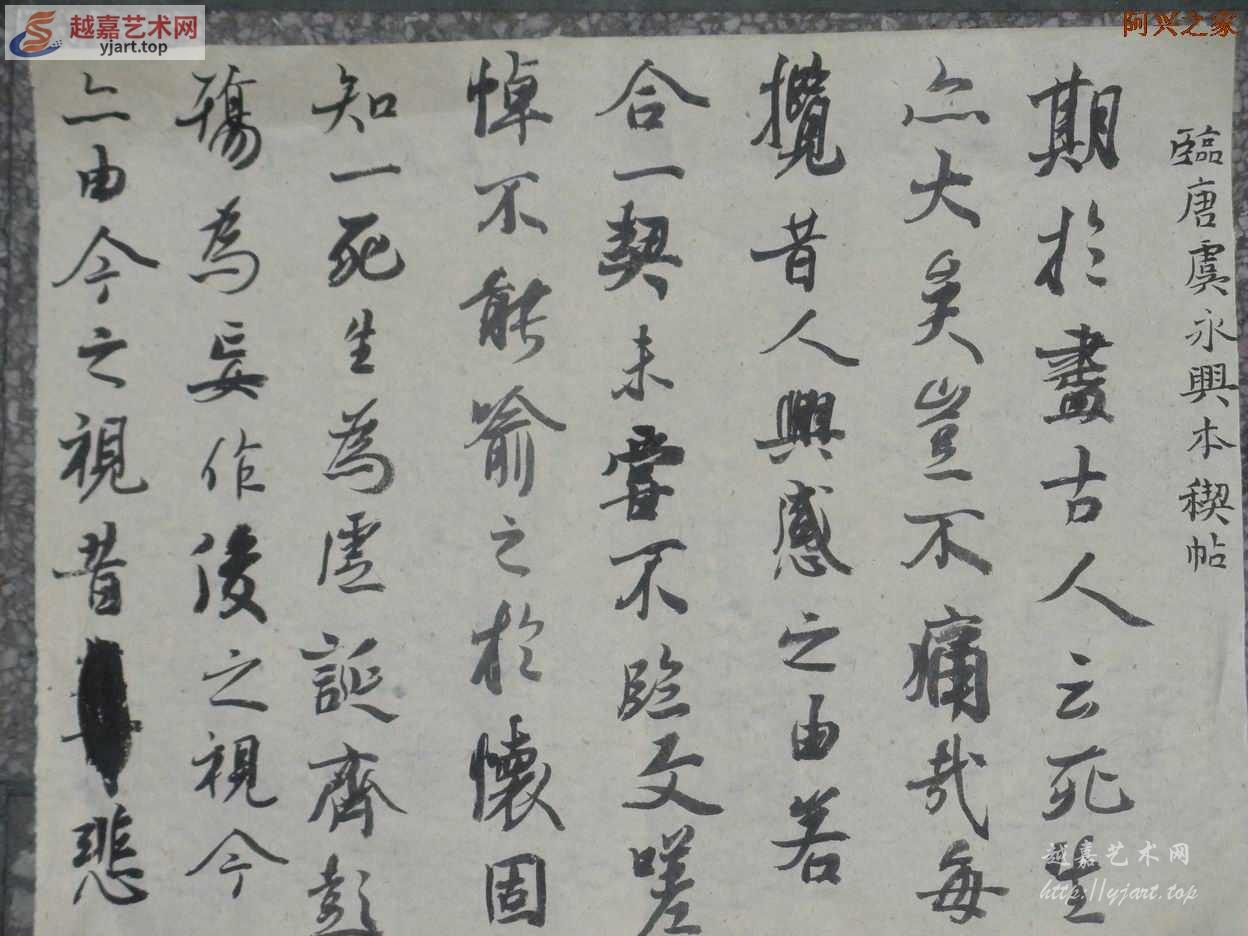 越嘉艺术网
yjart.top
阿兴之家
臨唐虞永興本稧帖
期於盡古人云死生
亦大矣豈不痛哉每
攬昔人興感之由若
合一契未嘗不臨文嗟
悼不能喻之於懷固
知一死生為虛誕齊彭
殤為妄作後之視今
亦由今之視昔悲
越嘉艺术网
http://yjart.top